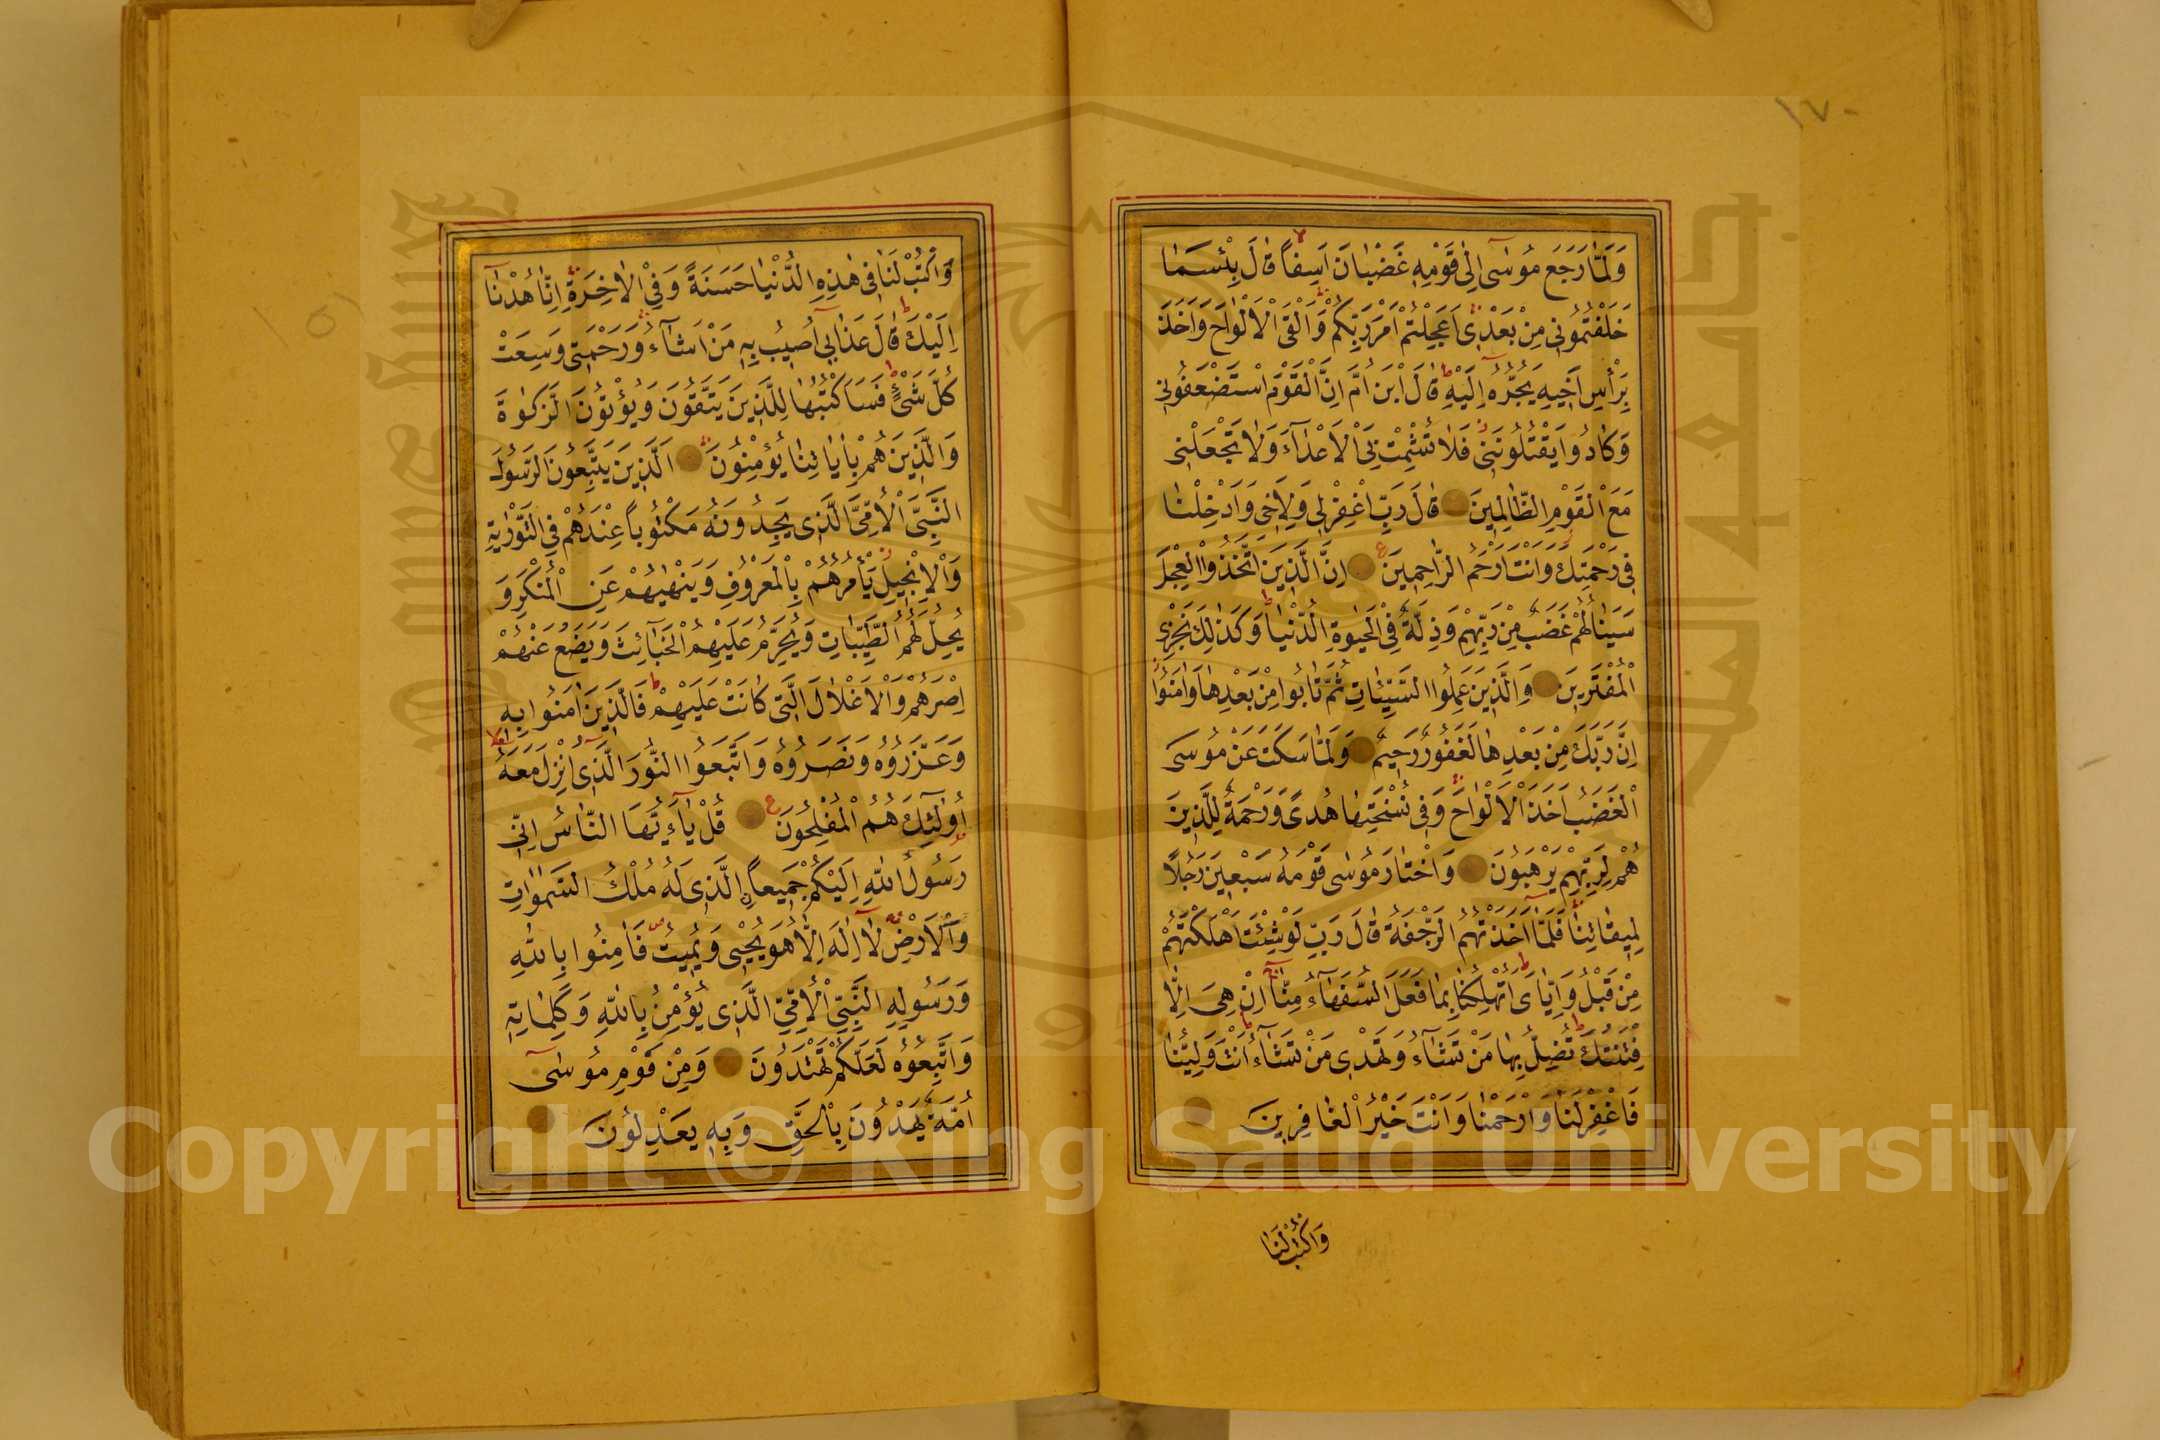 ١٧٠
وَلَمَّا رَجَعَ مُوسٰٓى اِلٰى قَوْمِهٖ غَضْبَانَ اَسِفًا قَالَ بِئْسَمَا
خَلَفْتُمُونٖى مِنْ بَعْدٖى اَعَجِلْتُمْ اَمْرَ رَبِّكُمْ وَاَلْقَى الْاَلْوَاحَ وَاَخَذَ
بِرَأْسِ اَخٖيهِ يَجُرُّهُٓ اِلَيْهِ قَالَ ابْنَ اُمَّ اِنَّ الْقَوْمَ اسْتَضْعَفُونٖى
وَكَادُوا يَقْتُلُونَنٖى فَلَا تُشْمِتْ بِىَ الْاَعْدَٓاءَ وَلَا تَجْعَلْنٖى
مَعَ الْقَوْمِ الظَّالِمٖينَ قَالَ رَبِّ اغْفِرْ لٖى وَلِاَخٖى وَاَدْخِلْنَا
فٖى رَحْمَتِكَ وَاَنْتَ اَرْحَمُ الرَّاحِمٖينَ اِنَّ الَّذٖينَ اتَّخَذُوا الْعِجْلَ
سَيَنَالُهُمْ غَضَبٌ مِنْ رَبِّهِمْ وَذِلَّةٌ فِى الْحَيٰوةِ الدُّنْيَا وَكَذٰلِكَ نَجْزِى
الْمُفْتَرٖينَ وَالَّذٖينَ عَمِلُوا السَّيِّاٰتِ ثُمَّ تَابُوا مِنْ بَعْدِهَا وَاٰمَنُٓوا
اِنَّ رَبَّكَ مِنْ بَعْدِهَا لَغَفُورٌ رَحٖيمٌ وَلَمَّا سَكَتَ عَنْ مُوسَى
الْغَضَبُ اَخَذَ الْاَلْوَاحَ وَفٖى نُسْخَتِهَا هُدًى وَرَحْمَةٌ لِلَّذٖينَ
هُمْ لِرَبِّهِمْ يَرْهَبُونَ وَاخْتَارَ مُوسٰى قَوْمَهُ سَبْعٖينَ رَجُلًا
لِمٖيقَاتِنَا فَلَمَّٓا اَخَذَتْهُمُ الرَّجْفَةُ قَالَ رَبِّ لَوْ شِئْتَ اَهْلَكْتَهُمْ
مِنْ قَبْلُ وَاِيَّاىَ اَتُهْلِكُنَا بِمَا فَعَلَ السُّفَهَٓاءُ مِنَّا اِنْ هِىَ اِلَّا
فِتْنَتُكَ تُضِلُّ بِهَا مَنْ تَشَٓاءُ وَتَهْدٖى مَنْ تَشَٓاءُ اَنْتَ وَلِيُّنَا
فَاغْفِرْ لَنَا وَارْحَمْنَا وَاَنْتَ خَيْرُ الْغَافِرٖينَ
وَاكْتُبْ لَنَا
وَاكْتُبْ لَنَا فٖى هٰذِهِ الدُّنْيَا حَسَنَةً وَفِى الْاٰخِرَةِ اِنَّا هُدْنَٓا
اِلَيْكَ قَالَ عَذَابٖٓى اُصٖيبُ بِهٖ مَنْ اَشَٓاءُ وَرَحْمَتٖى وَسِعَتْ
كُلَّ شَىْءٍ فَسَاَكْتُبُهَا لِلَّذٖينَ يَتَّقُونَ وَيُؤْتُونَ الزَّكٰوةَ
وَالَّذٖينَ هُمْ بِاٰيَاتِنَا يُؤْمِنُونَ اَلَّذٖينَ يَتَّبِعُونَ الرَّسُولَ
النَّبِىَّ الْاُمِّىَّ الَّذٖى يَجِدُونَهُ مَكْتُوبًا عِنْدَهُمْ فِى التَّوْرٰيةِ
وَالْاِنْجٖيلِ يَأْمُرُهُمْ بِالْمَعْرُوفِ وَيَنْهٰيهُمْ عَنِ الْمُنْكَرِ وَ
يُحِلُّ لَهُمُ الطَّيِّبَاتِ وَيُحَرِّمُ عَلَيْهِمُ الْخَبَٓائِثَ وَيَضَعُ عَنْهُمْ
اِصْرَهُمْ وَالْاَغْلَالَ الَّتٖى كَانَتْ عَلَيْهِمْ فَالَّذٖينَ اٰمَنُوا بِهٖ
وَعَزَّرُوهُ وَنَصَرُوهُ وَاتَّبَعُوا النُّورَ الَّذٖٓى اُنْزِلَ مَعَهُٓ
اُولٰٓئِكَ هُمُ الْمُفْلِحُونَ قُلْ يَٓا اَيُّهَا النَّاسُ اِنّٖى
رَسُولُ اللّٰهِ اِلَيْكُمْ جَمٖيعًا الَّذٖى لَهُ مُلْكُ السَّمٰوَاتِ
وَالْاَرْضِ لَٓا اِلٰهَ اِلَّا هُوَ يُحْيٖى وَيُمٖيتُ فَاٰمِنُوا بِاللّٰهِ
وَرَسُولِهِ النَّبِىِّ الْاُمِّىِّ الَّذٖى يُؤْمِنُ بِاللّٰهِ وَكَلِمَاتِهٖ
وَاتَّبِعُوهُ لَعَلَّكُمْ تَهْتَدُونَ وَمِنْ قَوْمِ مُوسٰٓى
اُمَّةٌ يَهْدُونَ بِالْحَقِّ وَبِهٖ يَعْدِلُونَ
Copyright © King Saud University